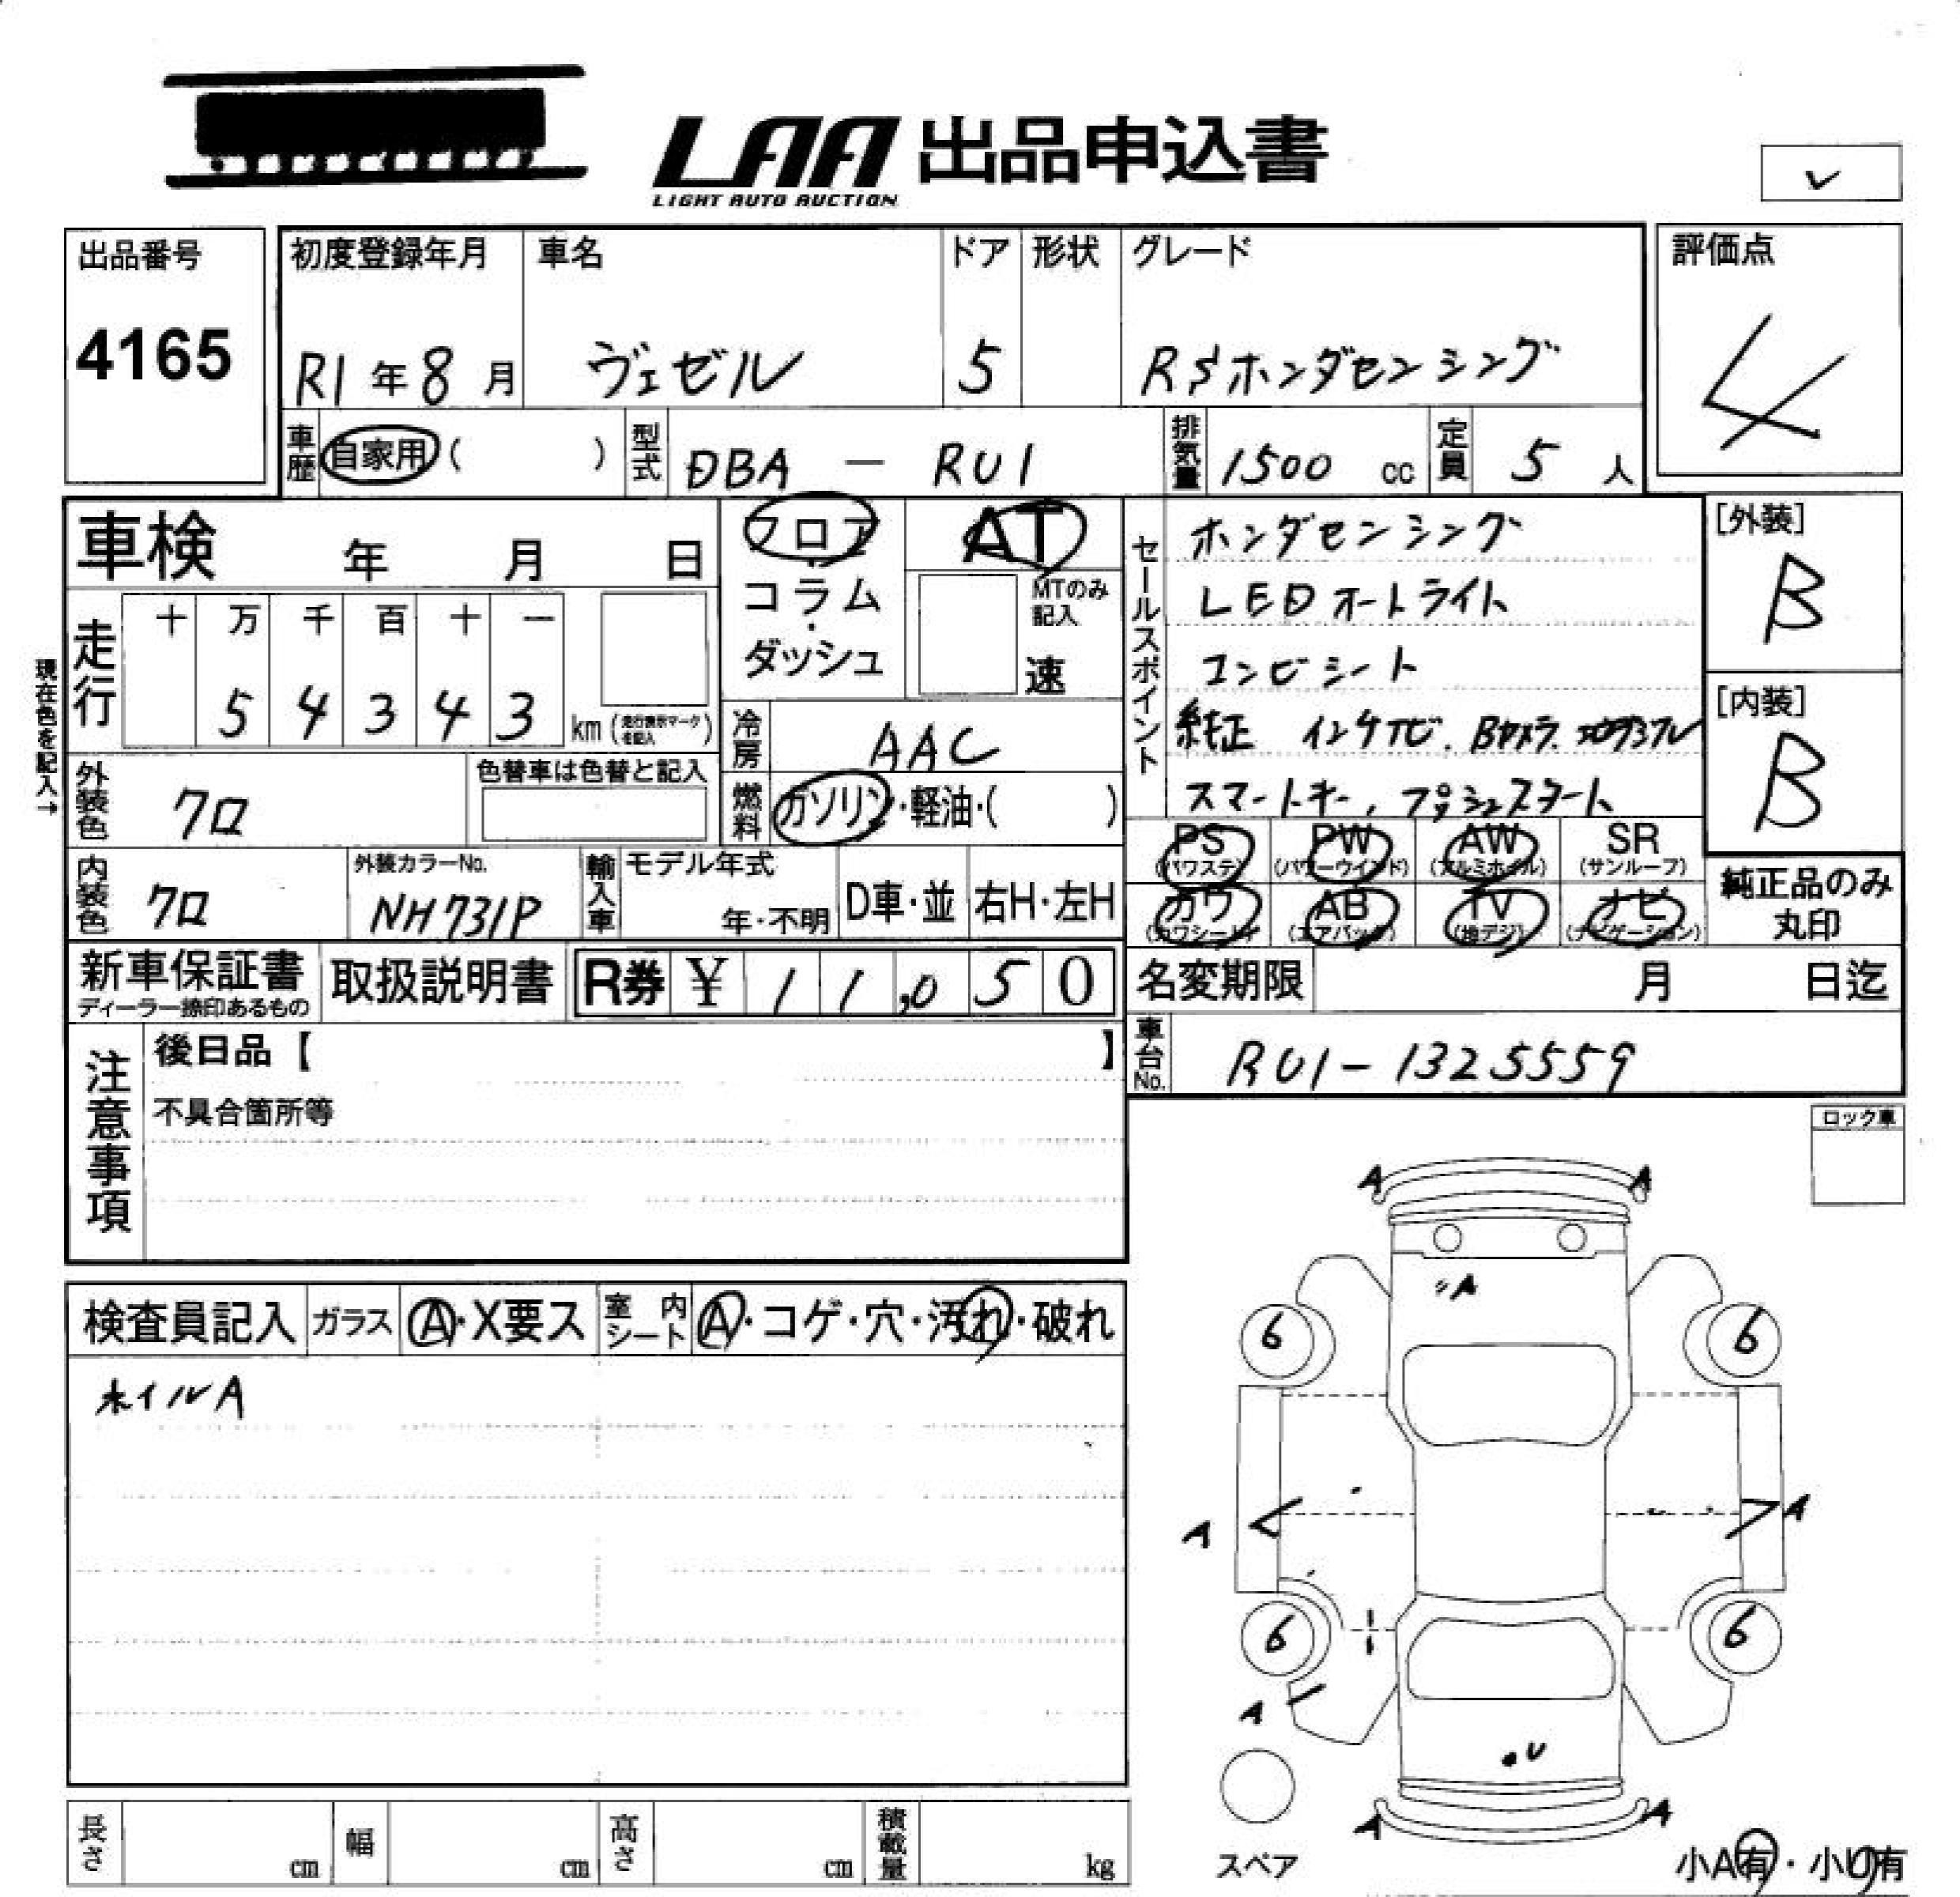 LAA 出品申込書
LIGHT AUTO AUCTION
出品番号
4165
初度登録年月
R1年8月
車名
ヴェゼル
ドア
5
形状
グレード
RSホンダセンシング
評価点
4
車歴
自家用( )
型式
DBA - RU1
排気量
1500 cc
定員
5 人
車検 年 月 日
フロア
コラム
・
ダッシュ
AT
MTのみ
記入
速
セールスポイント
ホンダセンシング
LEDオートライト
コンビシート
純正 インタナビ. Bカメラ.
スマートキー, プッシュスタート
[外装]
B
[内装]
B
現在色を記入→
走行
十 万 千 百 十 一
5 4 3 4 3
km(走行表示マークを記入)
冷房
AAC
外装色
クロ
色替車は色替と記入
燃料
ガソリン・軽油・( )
PS
(パワステ)
PW
(パワーウインド)
AW
(アルミホイル)
SR
(サンルーフ)
カワ
(カワシート)
AB
(エアバック)
TV
(地デジ)
ナビ
(ナビゲーション)
純正品のみ
丸印
内装色
クロ
外装カラーNo.
NH731P
輸入車
モデル年式
年・不明
D車・並
右H・左H
新車保証書
ディーラー捺印あるもの
取扱説明書
R券 ¥ 11,050
名変期限 月 日迄
車台No.
RU1-1325559
注意事項
後日品【 】
不具合箇所等
ロック車
検査員記入
ガラス
A・X要ス
室内
シート
A・コゲ・穴・汚れ・破れ
ホイルA
A A
A
6 6
A A
6 6
A
U
A A
スペア
小A有・小U有
長さ cm
幅 cm
高さ cm
積載量 kg